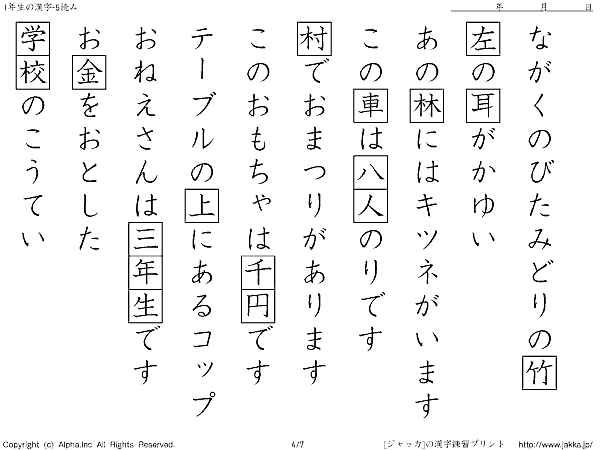 1年生の漢字-5読み
年 月 日
ながくのびたみどりの竹
左の耳がかゆい
あの林にはキツネがいます
この車は八人のりです
村でおまつりがあります
このおもちゃは千円です
テーブルの上にあるコップ
おねえさんは三年生です
お金をおとした
学校のこうてい
Copyright (c) Alpha.Inc All Rights Reserved.
4/7
[ジャッカ]の漢字練習プリント http://www.jakka.jp/